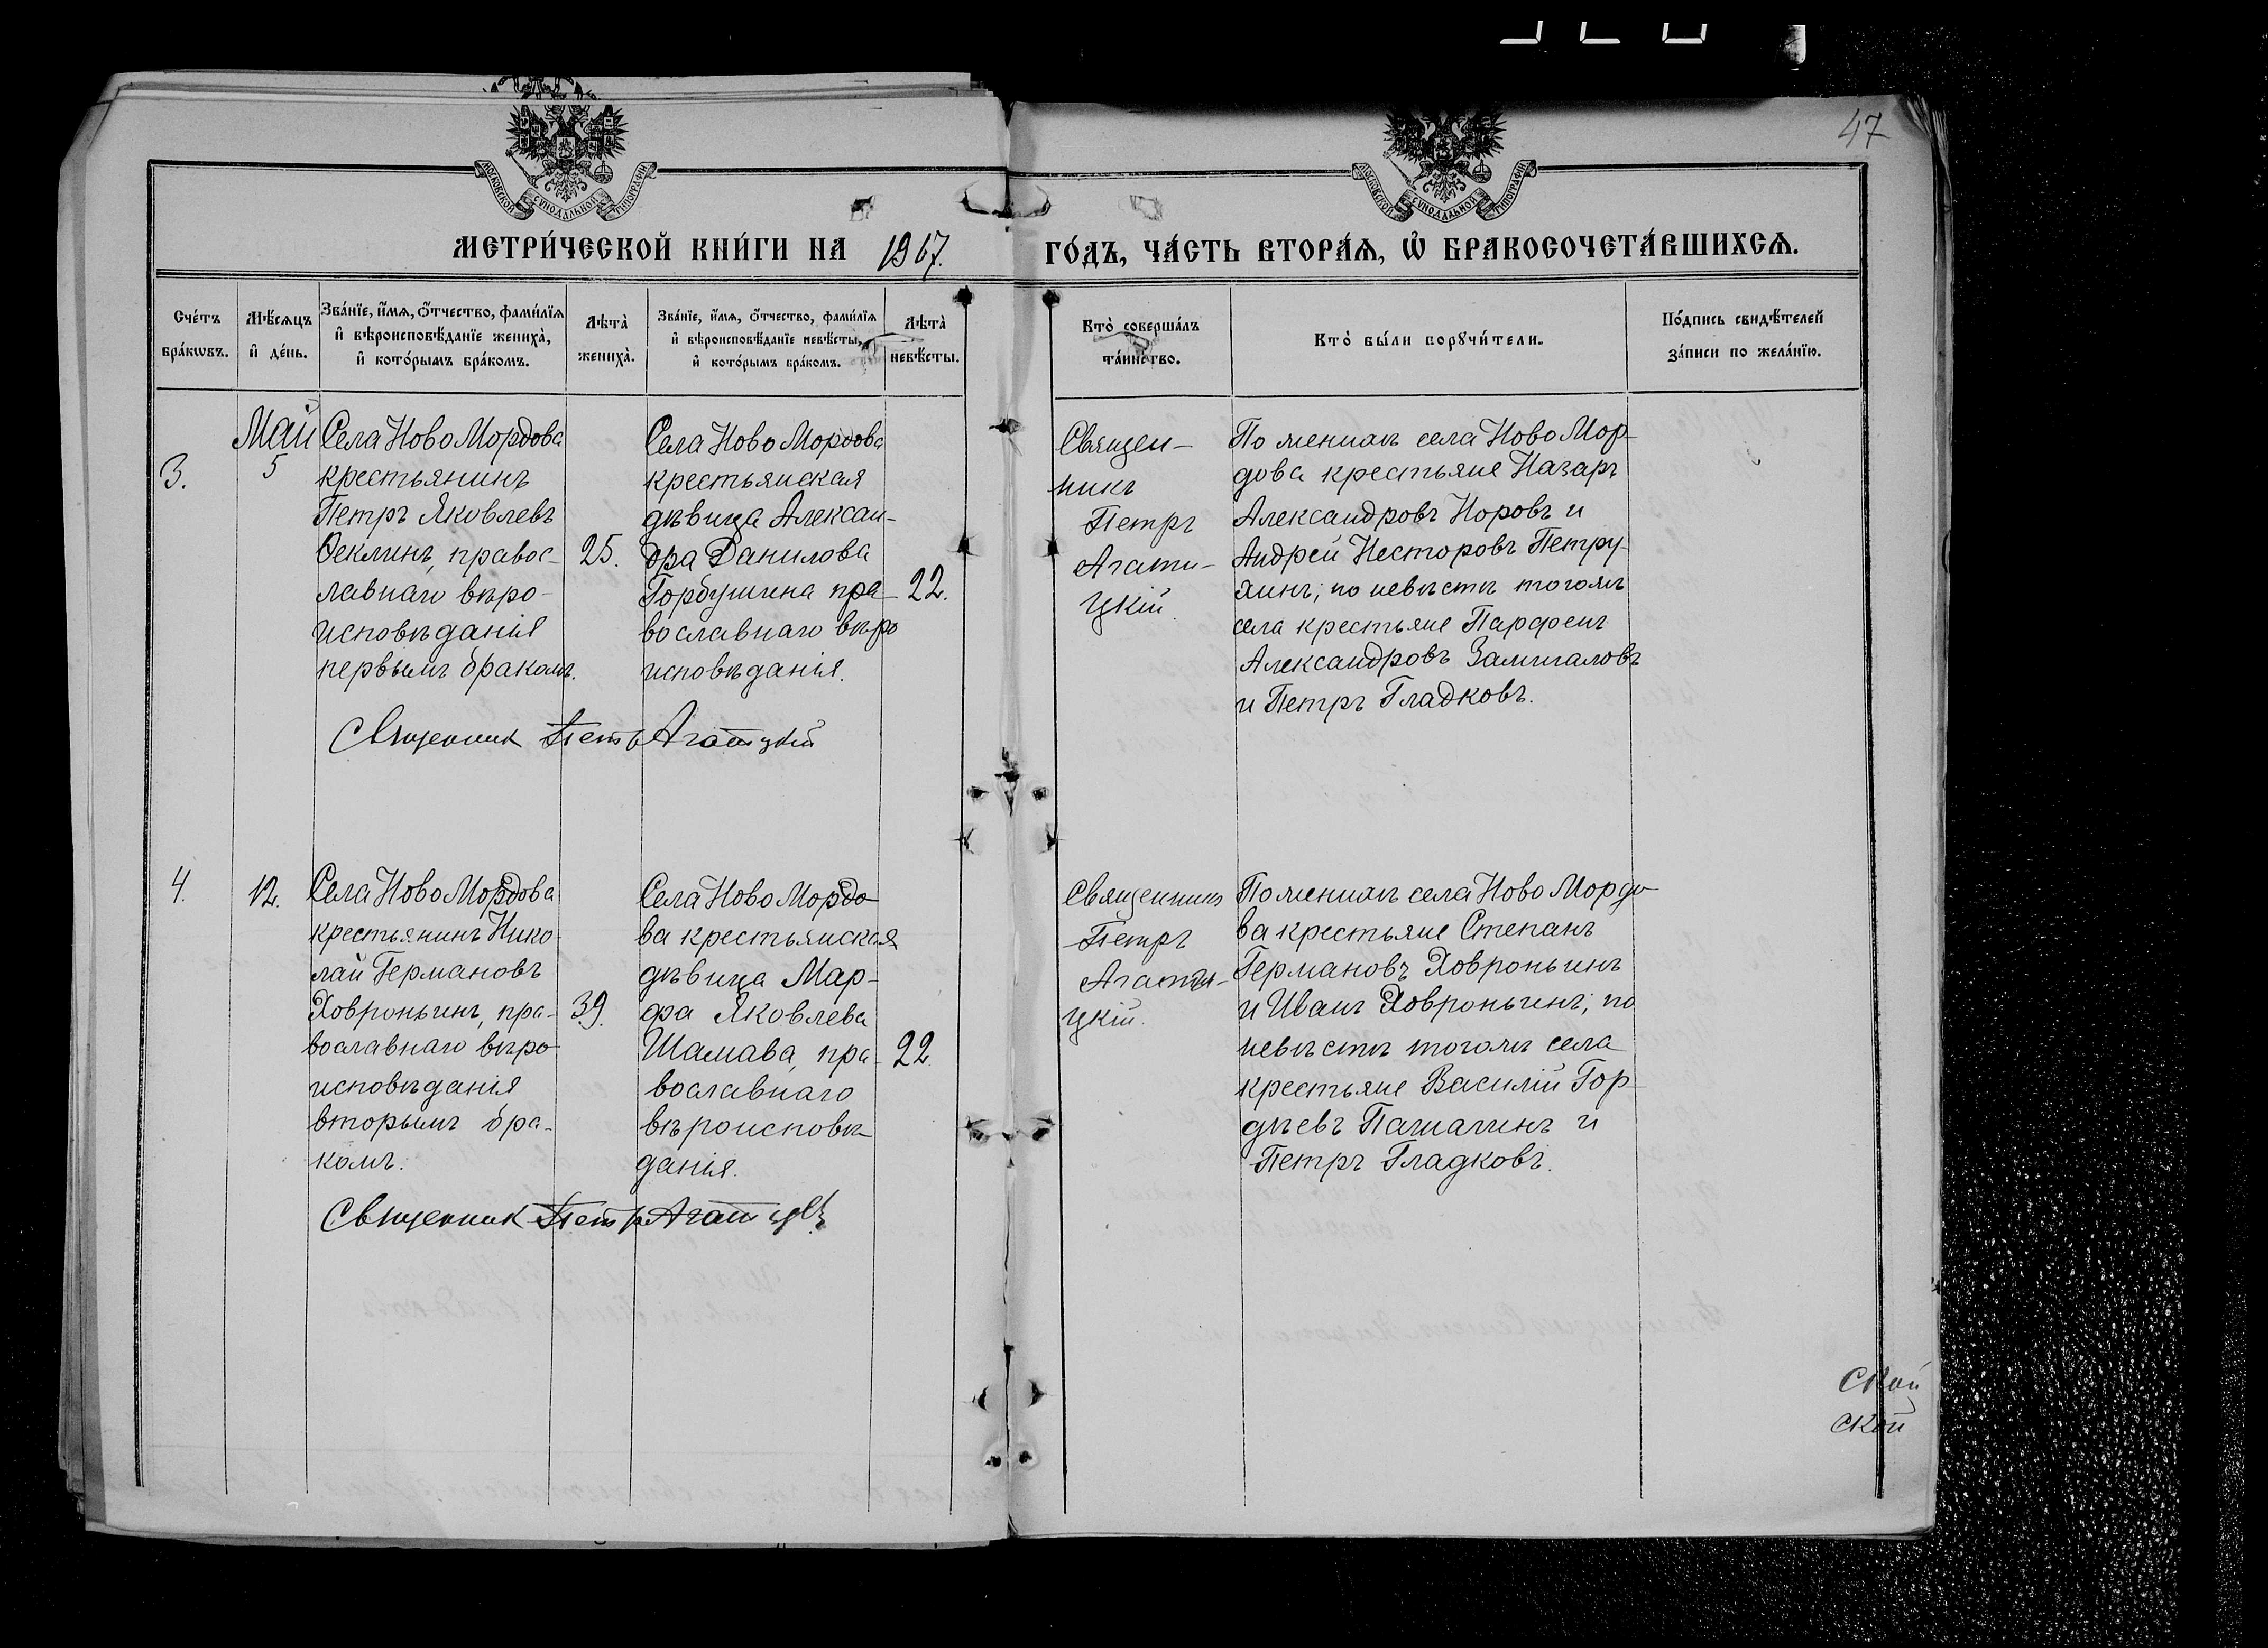 47
МОСКОВСКОЙ СѴНОДАЛЬНОЙ ТИПОГРАФІИ
МОСКОВСКОЙ СѴНОДАЛЬНОЙ ТИПОГРАФІИ
МЕТРИ́ЧЕСКОЙ КНИ́ГИ НА 1917. ГО́ДЪ, ЧА́СТЬ ВТОРА́Ѧ, Ѡ҆ БРАКОСОЧЕТА́ВШИХСѦ.
Сче́тъ
бра́кѡвъ.
Мѣ́сѧцъ
и҆ де́нь.
Зва́нїе, и҆́мѧ, ѻ҆́тчество, фами́лїѧ
и҆ вѣроисповѣ́данїе жениха̀,
и҆ кото́рымъ бра́комъ.
Лѣта̀
жениха̀.
Зва́нїе, и҆́мѧ, ѻ҆́тчество, фами́лїѧ
и҆ вѣроисповѣ́данїе невѣ́сты,
и҆ кото́рымъ бра́комъ.
Лѣта̀
невѣ́сты.
Кто̀ соверша́лъ
та́инство.
Кто̀ бы́ли порꙋчи́тели.
По́дпись свидѣ́телей
за́писи по жела́нїю.
3.
Май
5
Села Ново Мордова
крестьянинъ
Петръ Яковлевъ
Ѳеклинъ, правос-
лавнаго вѣро-
исповѣданія
первымъ бракомъ.
25.
Села Ново Мордова
крестьянская
дѣвица Алексан-
дра Данилова
Горбушина пра-
вославнаго вѣро
исповѣданія.
22.
Священ-
никъ
Петръ
Агати-
цкій.
По женихѣ села Ново Мор-
дова крестьяне Назаръ
Александровъ Норовъ и
Андрей Несторовъ Петру-
хинъ; по невѣстѣ тогожъ
села крестьяне Парфенъ
Александровъ
и Петръ Гладковъ.
Священник Петръ Агатицкій
4.
12.
Села Ново Мордова
крестьянинъ Нико
лай Германовъ
Ховроньинъ, пра-
вославнаго вѣро
исповѣданія
вторымъ бра-
комъ.
39.
Села Ново Мордо
ва крестьянская
дѣвица Мар-
фа Яковлева
Шамава, пра-
вославнаго
вѣроисповѣ
данія.
22.
Священникъ
Петръ
Агати-
цкій.
По женихѣ села Ново Мордо
ва крестьяне Степанъ
Германовъ Ховроньинъ
и Иванъ Ховроньинъ; по
невѣстѣ тогожъ села
крестьяне Василій Гор
дѣевъ Пашагинъ и
Петръ Гладковъ.
Священник Петръ Агатицкій
ской
ской